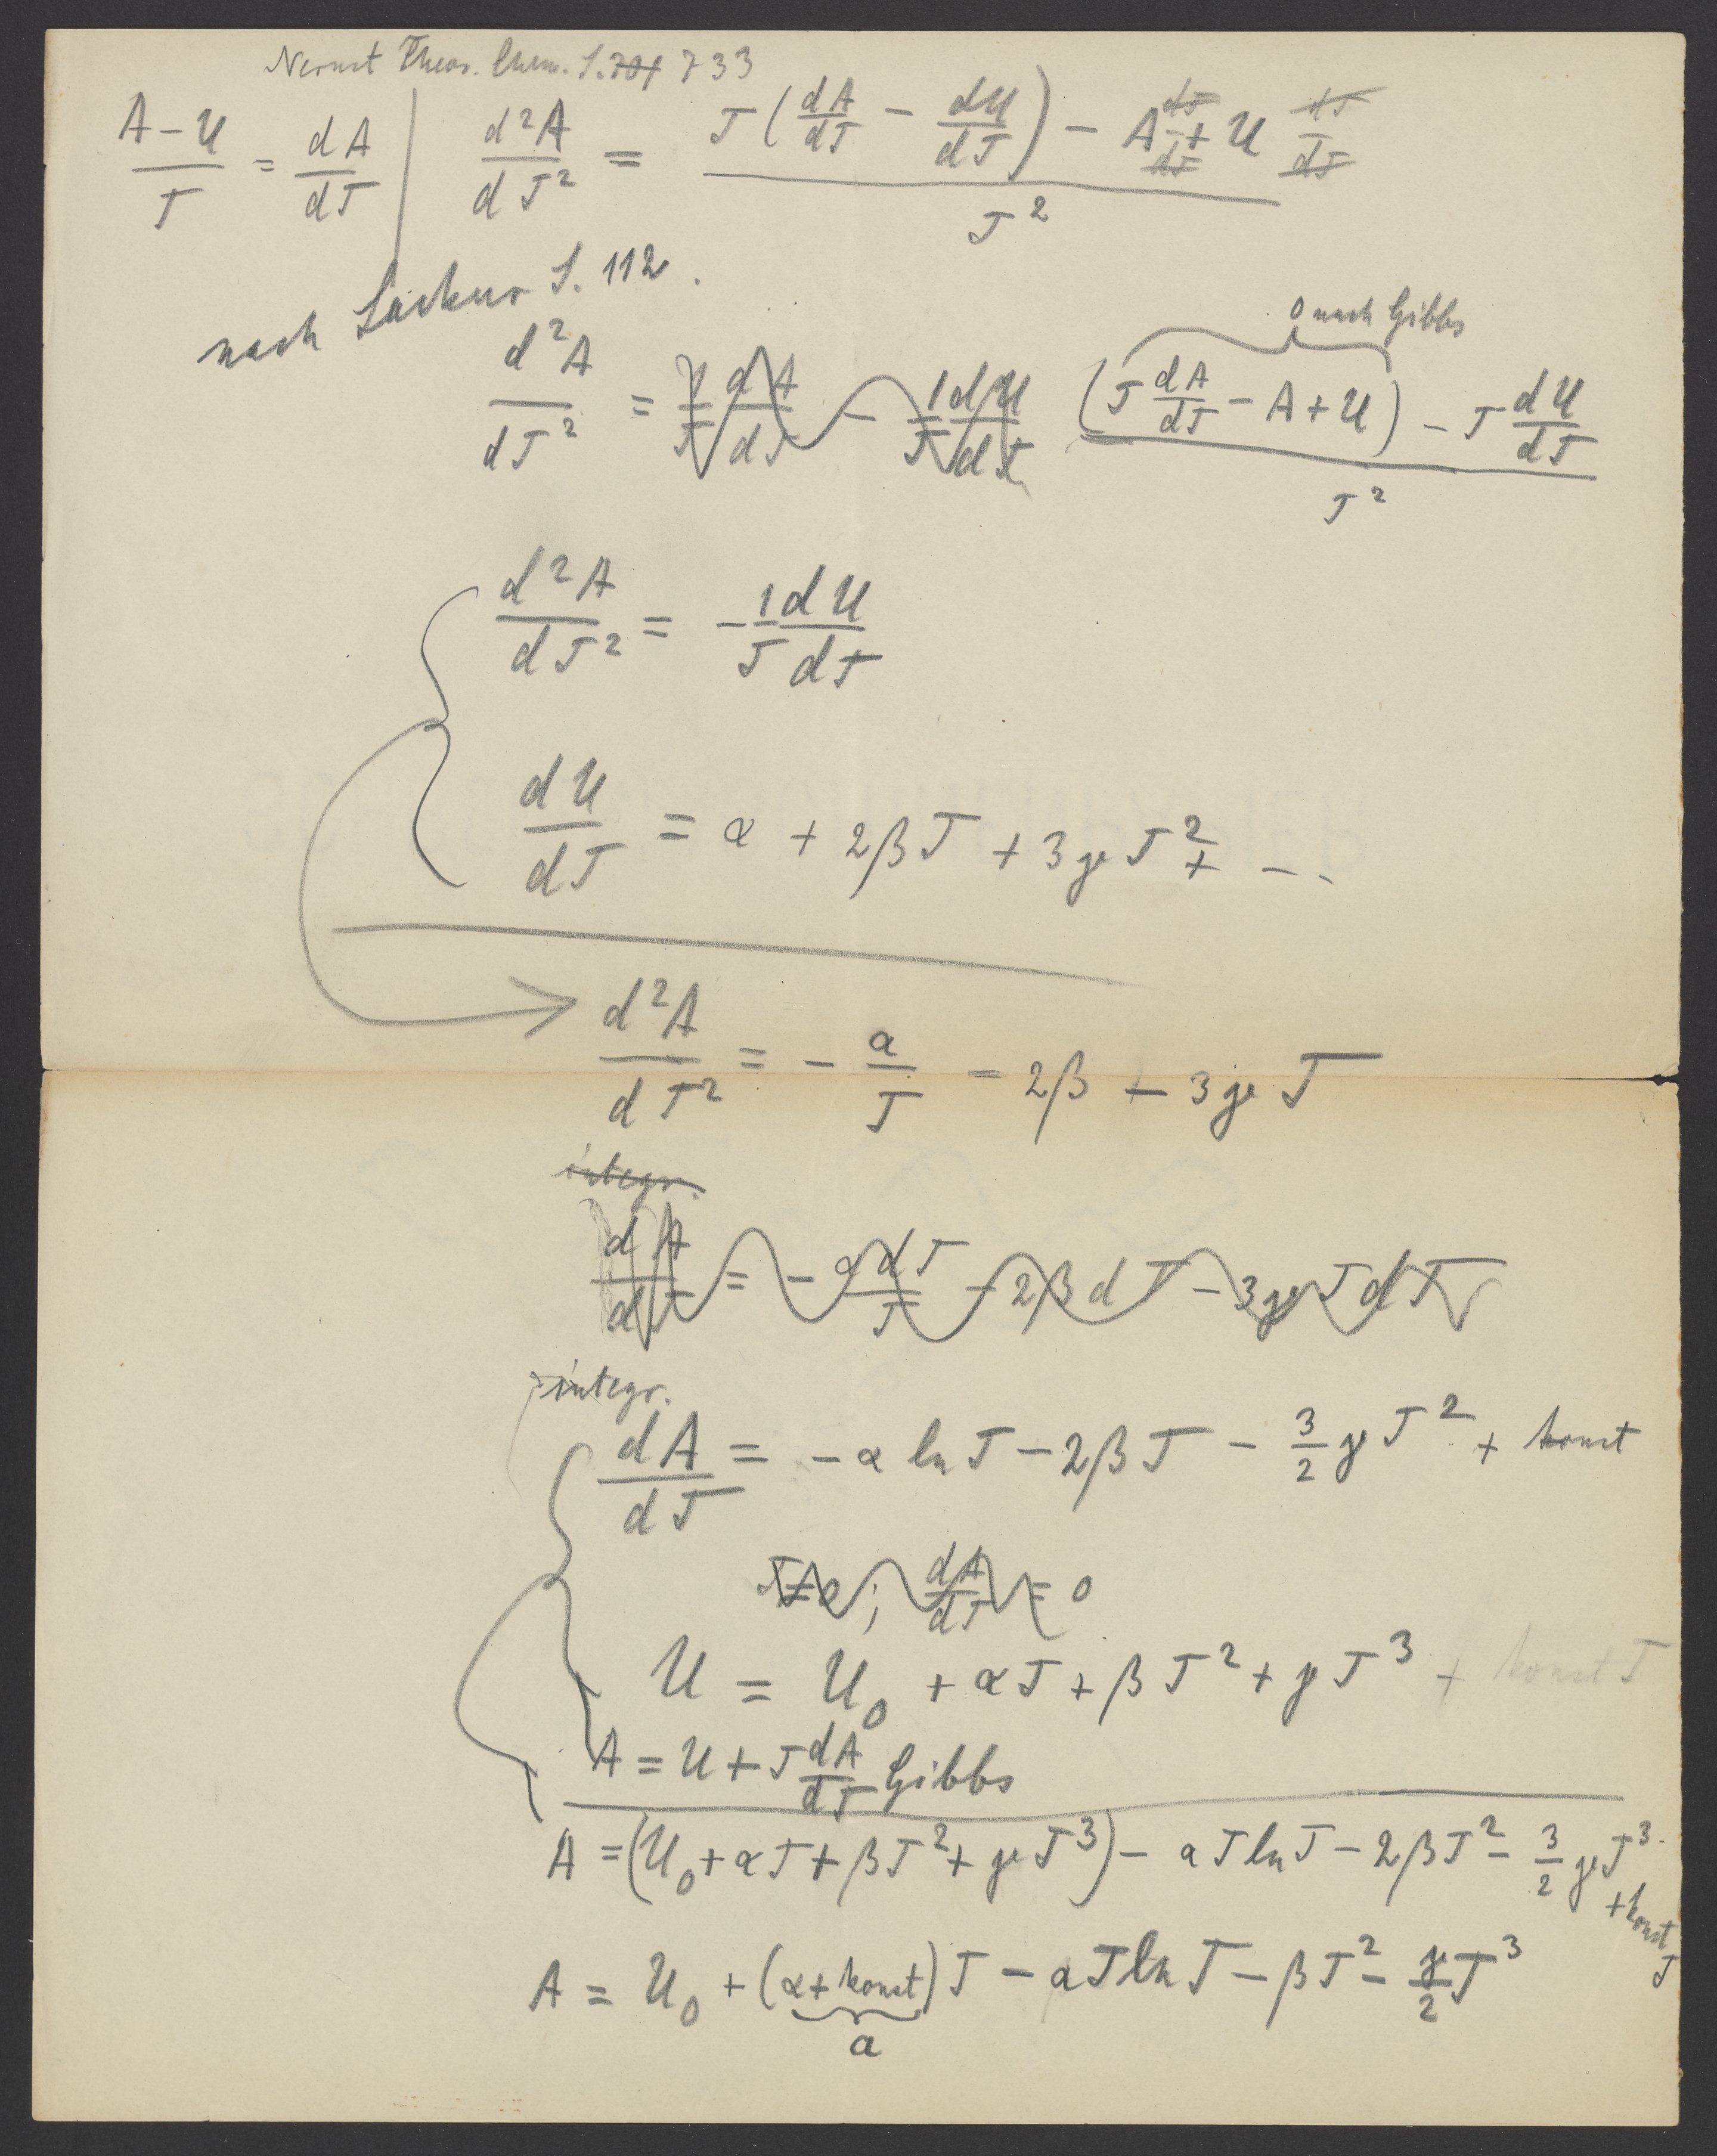 Nernst Theor. Chem. S. 733
(A − U)/T = dA/dT | d²A/dT² = (T(dA/dT − dU/dT) − A dT/dT + U dT/dT)/T²
nach Sackur S. 112.
0 nach Gibbs
d²A/dT² = 1/T dA/dT − 1/T dU/dT ((T dA/dT − A + U) − T dU/dT)/T²
d²A/dT² = − 1/T dU/dT
dU/dT = α + 2βT + 3γT² + - -
d²A/dT² = − α/T − 2β − 3γT
integr.
dA/dT = − α dT/T − 2β dT − 3γT dT
integr.
dA/dT = − α ln T − 2βT − 3/2 γT² + konst
T = 0; dA/dT = 0
U = U₀ + αT + βT² + γT³ + konst T
A = U + T dA/dT Gibbs
A = (U₀ + αT + βT² + γT³) − αT ln T − 2βT² − 3/2 γT³ + konst T
A = U₀ + (α + konst)T − αT ln T − βT² − γ/2 T³
a